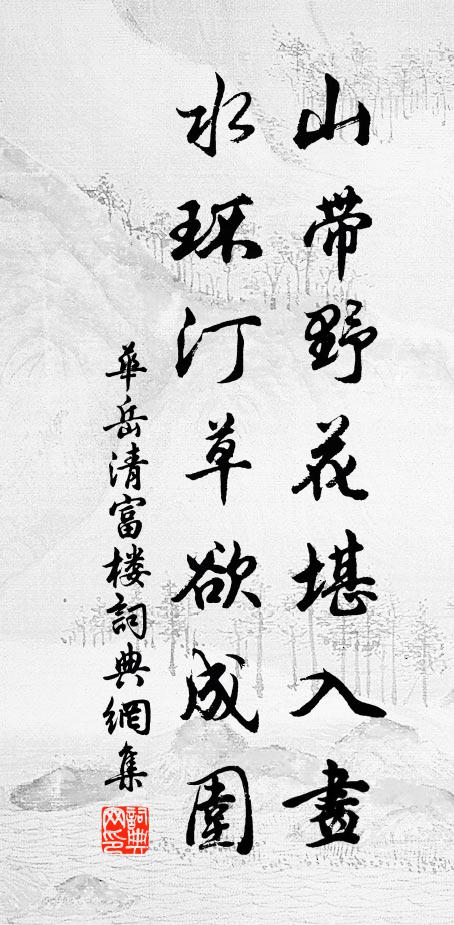 山帶野花堪入畫
水環汀草欲成圍
華岳清富楼詞典網集
詞典網印